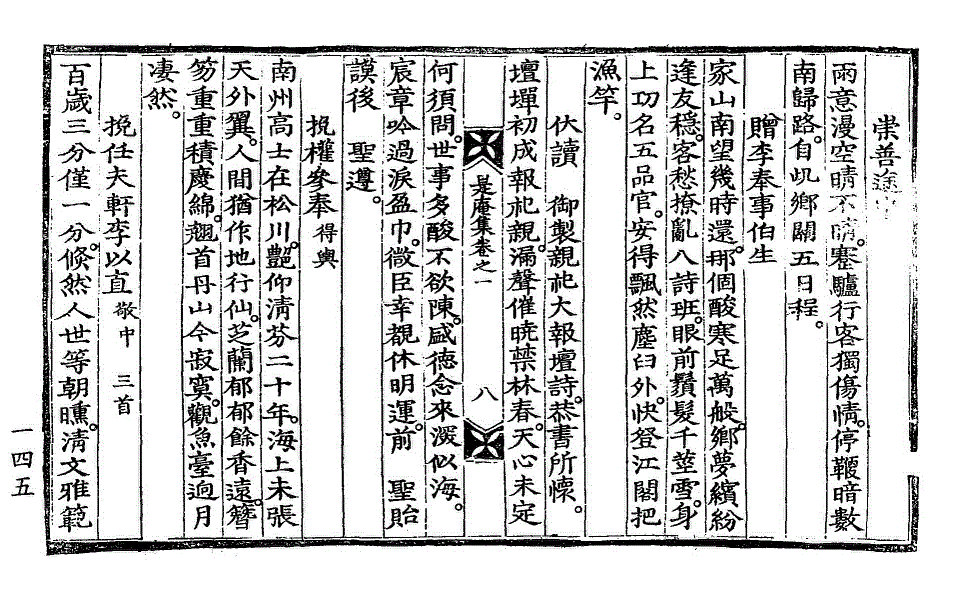 崇善途中
雨意漫空晴不晴。蹇驢行客獨傷情。停鞭暗數
南歸路。自此鄉關五日程。
贈李奉事伯生
家山南望幾時還。那個酸寒足萬般。鄉夢繽紛
逢友穩。客愁撩亂入詩班。眼前鬚髮千莖雪。身
上功名五品官。安得飄然塵臼外。快登江閣把
漁竿。
伏讀 御製親祀大報壇詩。恭書所懷。
壇墠初成報祀親。漏聲催曉禁林春。天心未定
何須問。世事多酸不欲陳。盛德念來深似海。
宸章吟過淚盈巾。微臣幸覩休明運。前 聖貽
謨後 聖遵。
是庵集卷之一
八
挽權參奉得輿
南州高士在松川。艶仰淸芬二十年。海上未張
天外翼。人間猶作地行仙。芝蘭郁郁餘香遠。簪
笏重重積慶綿。翹首丹山今寂寞。觀魚臺逈月
凄然。
挽任夫軒李以直敬中 三首
百歲三分僅一分。倏然人世等朝曛。淸文雅範
一四五